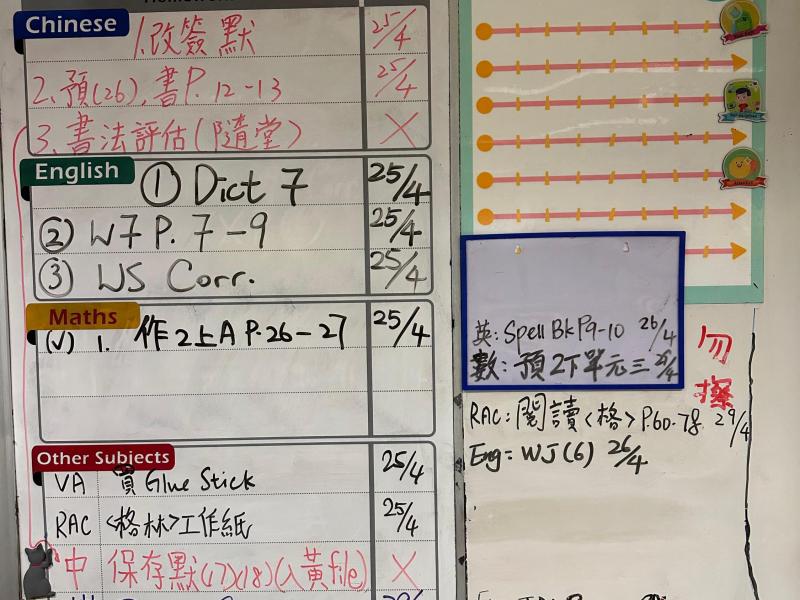 Chinese
1.改簽默 25/4
2.預(26),書P.12-13 25/4
3.書法評估(隨堂) X
English
① Dict 7 25/4
② W7 P.7-9 25/4
③ WS Corr. 25/4
Maths
(✓) 1. 作2上A P.26-27 25/4
Other Subjects
VA 買Glue Stick 25/4
RAC <格林>工作紙 25/4
中 保存默(17)(18)(入黃file) X
英: Spell Bk P9-10 26/4
數: 預2下單元三 25/4
勿擦
RAC: 閱讀<格>P.60-78 29/4
Eng: WJ(6) 26/4